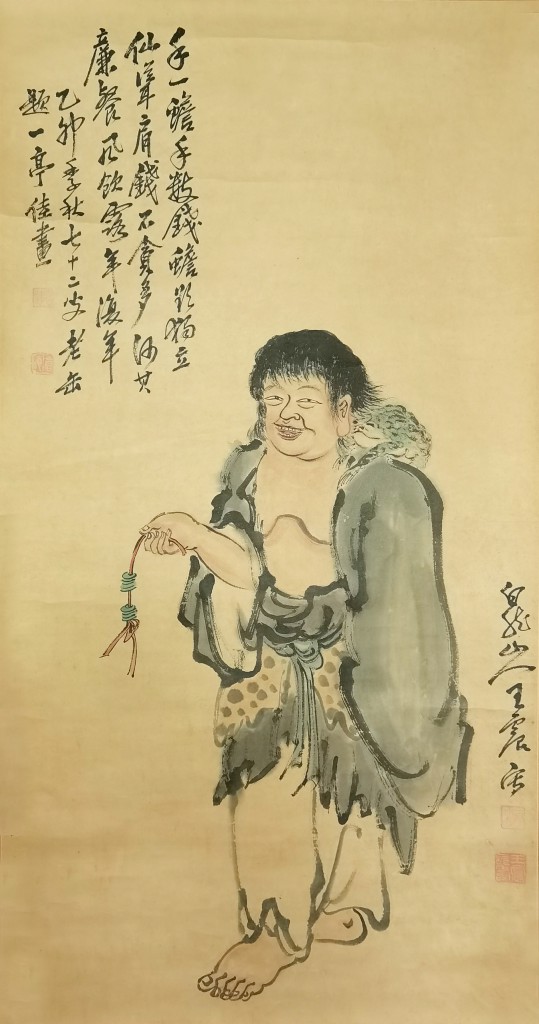 手一蟾手數錢蟾獨立
仙聳肩錢不貪多何其
廉餐風飲露年復年
乙卯季秋七十二叟老缶
題一亭佳畫
白龍山人王震寫